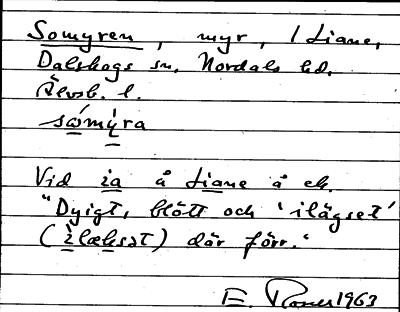 Somyren, myr, i Liane,
Dalskogs sn, Nordals hd,
Älvsb. l.
sómy̆ra
Vid ia å Liane å ek.
"Dyigt, blött och 'ilägset'
(ìlæksət) där förr."
E. 1963